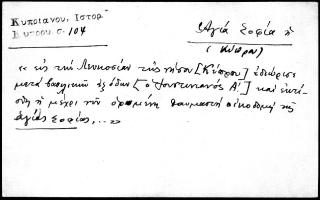 Κυπριανου, Ιστορ
Κυπρου σ. 104
Ἁγία Σοφία ἡ
(Κύπρου)
« εἰς τὴν Λευκοσίαν τῆς νήσου [Κύπρου] ἐδιώρισε
μετὰ βασιλικῶν ἐξόδων [ὁ Ἰουστινιανὸς Α'] καὶ ἐκτί-
σθη ἡ μέχρι τοῦ ὁρωμένη θαυμαστὴ οἰκοδομὴ τῆς
ἁγίας Σοφίας, .. »